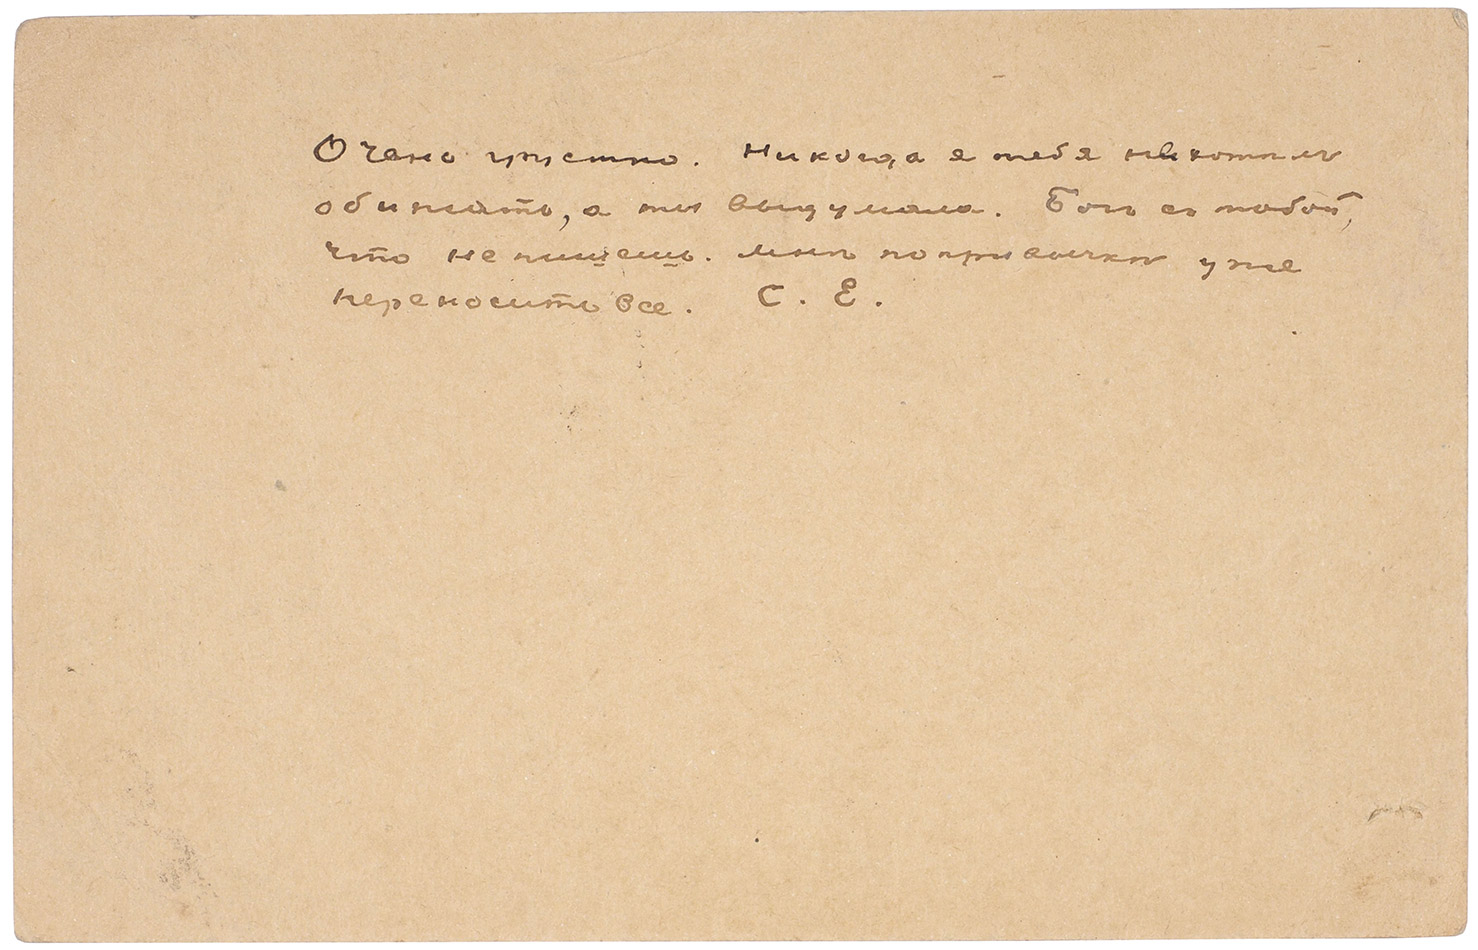 Очень грустно. Никогда я тебя не хотел
обижать, а ты выдумала. Бог с тобой,
что не пишешь. Мне по привычке уже
переносить все. С. Е.